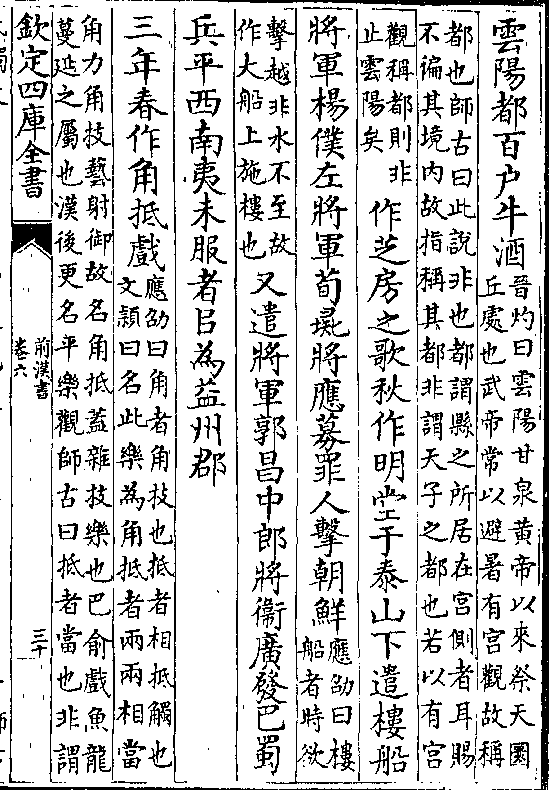 雲陽都百户牛酒晉灼曰雲陽甘泉黄帝以來祭天圜
丘處也武帝常以避暑有宫觀故稱
都也師古曰此說非也都謂縣之所居在宫側者耳賜
不徧其境内故指稱其都非謂天子之都也若以有宫
觀稱都則非
止雲陽矣
作芝房之歌秋作明堂于泰山下遣樓船
將軍楊僕左將軍荀彘將應募罪人擊朝鮮應劭曰樓
船者時欲
擊越非水不至故
作大船上施樓也
又遣將軍郭昌中郎將衞廣發巴蜀
兵平西南夷未服者㠯為益州郡
三年春作角抵戲應劭曰角者角技也抵者相抵觸也
文頴曰名此樂為角抵者兩兩相當
角力角技藝射御故名角抵蓋雜技樂也巴俞戲魚龍
蔓延之屬也漢後更名平樂觀師古曰抵者當也非謂
欽定四庫全書
前漢書
卷六
三十